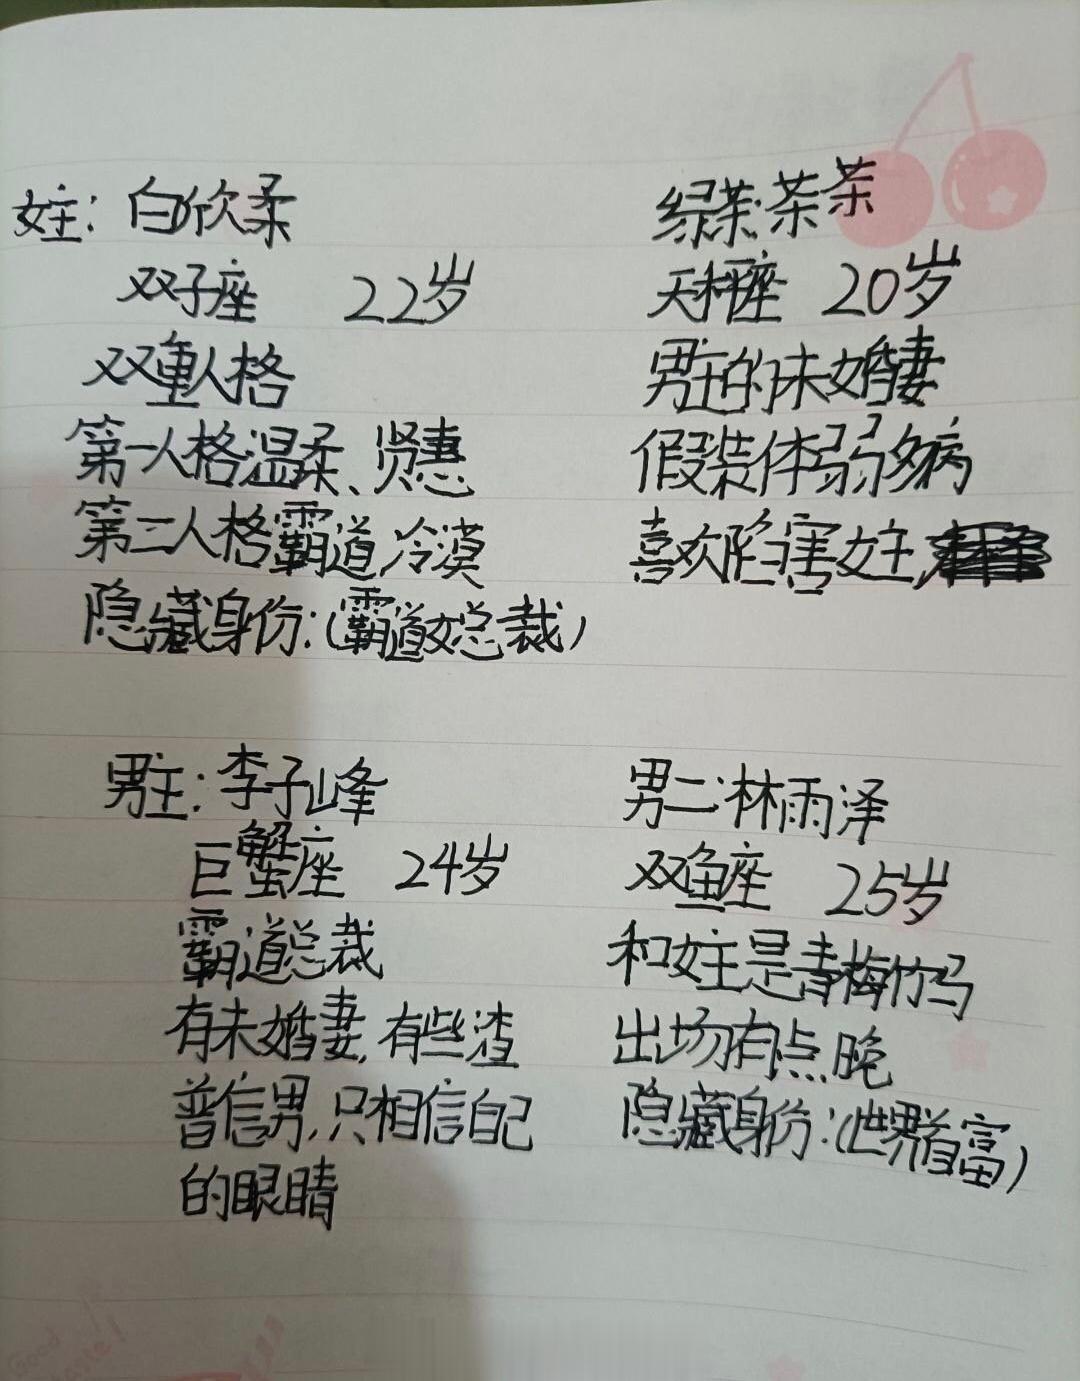 女主：白欣柔
双子座 22岁
双重人格
第一人格温柔、贤惠
第二人格霸道,冷漠
隐藏身份：(霸道女总裁)
绿茶：茶茶
天秤座 20岁
男主的未婚妻
假装体弱多病
喜欢陷害女主,
男主：李子峰
巨蟹座 24岁
霸道总裁
有未婚妻,有些渣
普信男,只相信自己
的眼睛
男二：林雨泽
双鱼座 25岁
和女主是青梅竹马
出场有点晚
隐藏身份：(世界首富)
Good